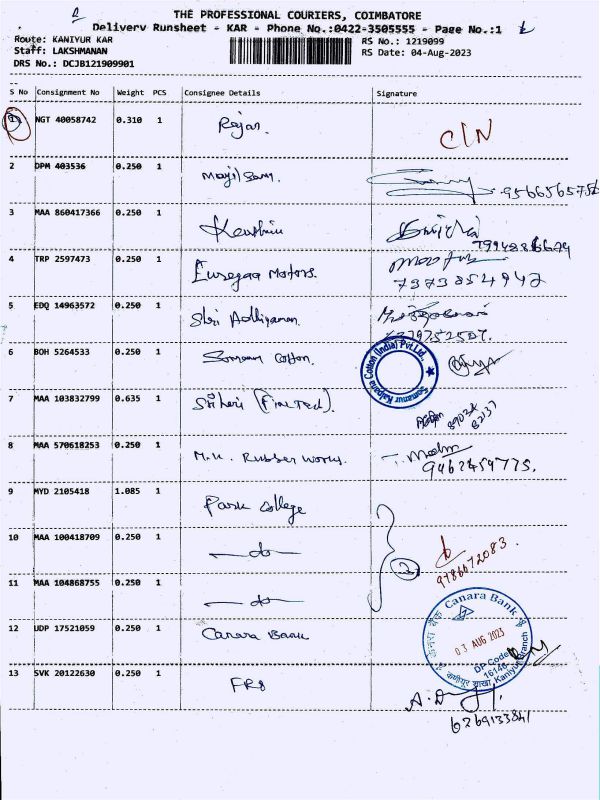 THE PROFESSIONAL COURIERS, COIMBATORE
Delivery Runsheet - KAR - Phone No.:0422-3505555 - Page No.:1
Route: KANIYUR KAR
RS No.: 1219099
Staff: LAKSHMANAN
RS Date: 04-Aug-2023
DRS No.: DCJB121909901
S No Consignment No Weight PCS Consignee Details Signature
1 NGT 40058742 0.310 1 Rajan CIN
2 DPM 403536 0.250 1
3 MAA 860417366 0.250 1
4 TRP 2597473 0.250 1 Motors.
7373854942
5 EDQ 14963572 0.250 1 Shri Adhiyaman
6 BOH 5264533 0.250 1 Cotton. Somanur Kalpana Cotton (India) Pvt Ltd.
7 MAA 103832799 0.635 1
8 MAA 570618253 0.250 1 M.K. Rubber Works.
9462459775.
9 MYD 2105418 1.085 1 Park College
10 MAA 100418709 0.250 1 do
9786672083.
11 MAA 104868755 0.250 1 do
12 UDP 17521059 0.250 1 Canara Bank
केनरा बैंक Canara Bank
03 AUG 2023
DP Code
16148
कणीयूर शाखा, Kaniyur Branch
13 SVK 20122630 0.250 1
6269133841